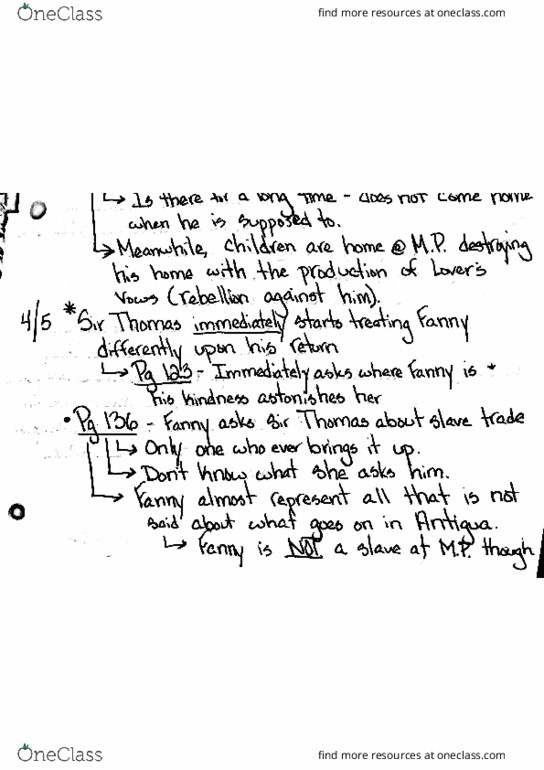 OneClass
find more resources at oneclass.com
↳ Is there for a long time - does not come home
when he is supposed to.
↳ Meanwhile, children are home @ M.P. destroying
his home with the production of Lover's
Vows (rebellion against him).
4/5 * Sir Thomas immediately starts treating Fanny
differently upon his return
↳ Pg 123 - Immediately asks where Fanny is +
his kindness astonishes her
• Pg 136 - Fanny asks Sir Thomas about slave trade
↳ Only one who ever brings it up.
↳ Don't know what she asks him.
↳ Fanny almost represent all that is not
said about what goes on in Antigua.
↳ Fanny is NOT a slave at M.P. though
OneClass
find more resources at oneclass.com